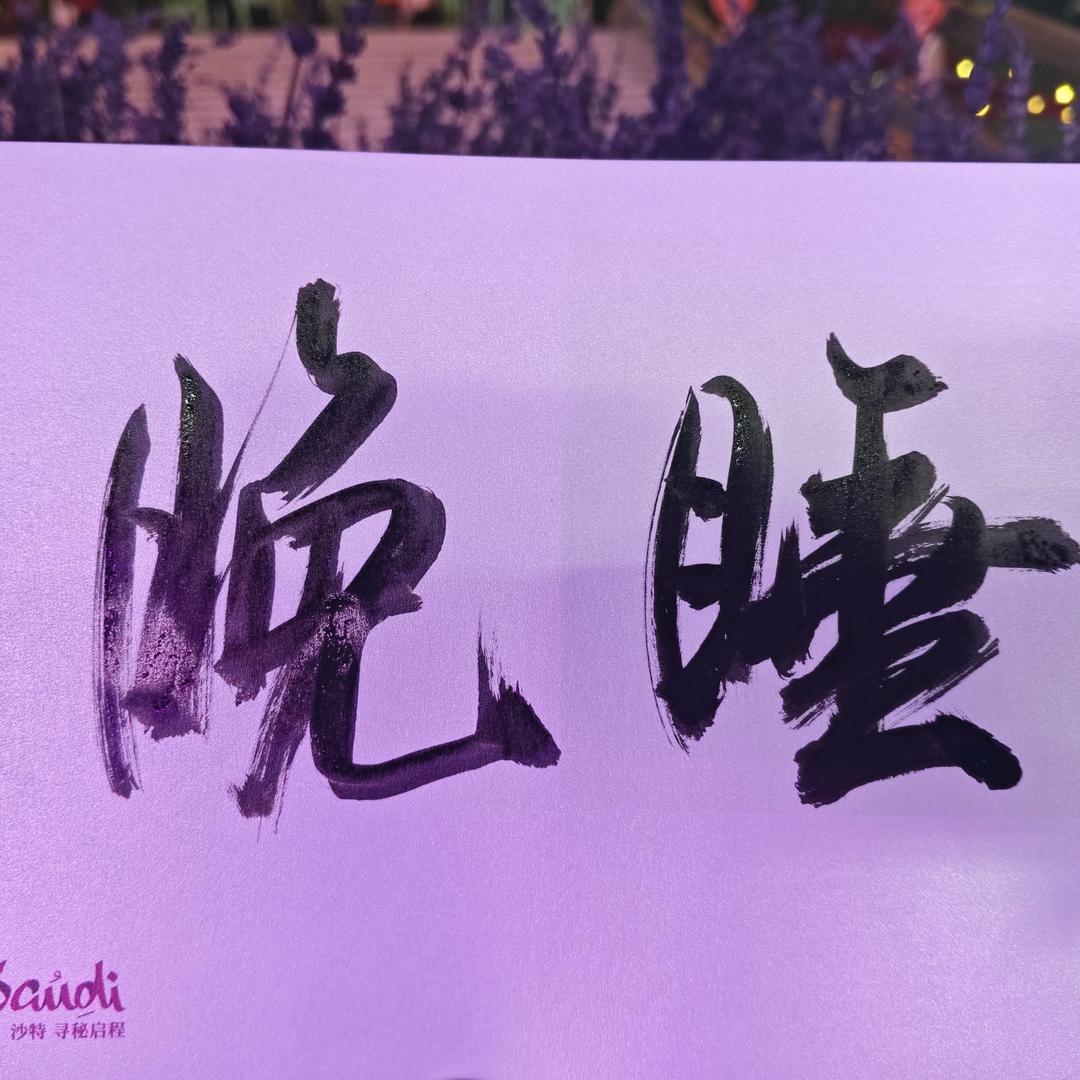 晚睡
Saudi
沙特 寻秘启程